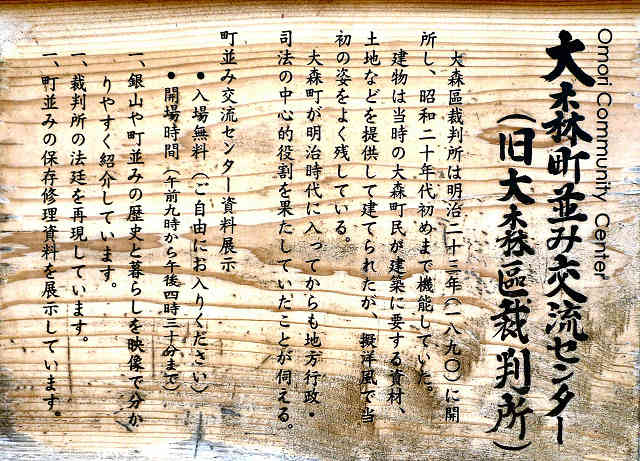 Omori Community Center
大森町並み交流センター
(旧大森區裁判所)
大森區裁判所は明治二十三年(一八九〇)に開
所し、昭和二十年代初めまで機能していた。
建物は当時の大森町民が建築に要する資材、
土地などを提供して建てられたが、擬洋風で当
初の姿をよく残している。
大森町が明治時代に入ってからも地方行政・
司法の中心的役割を果たしていたことが伺える。
町並み交流センター資料展示
●入場無料(ご自由にお入りください)
●開場時間(午前九時から午後四時三十分まで)
一、銀山や町並みの歴史と暮らしを映像で分か
りやすく紹介しています。
一、裁判所の法廷を再現しています。
一、町並みの保存修理資料を展示しています。